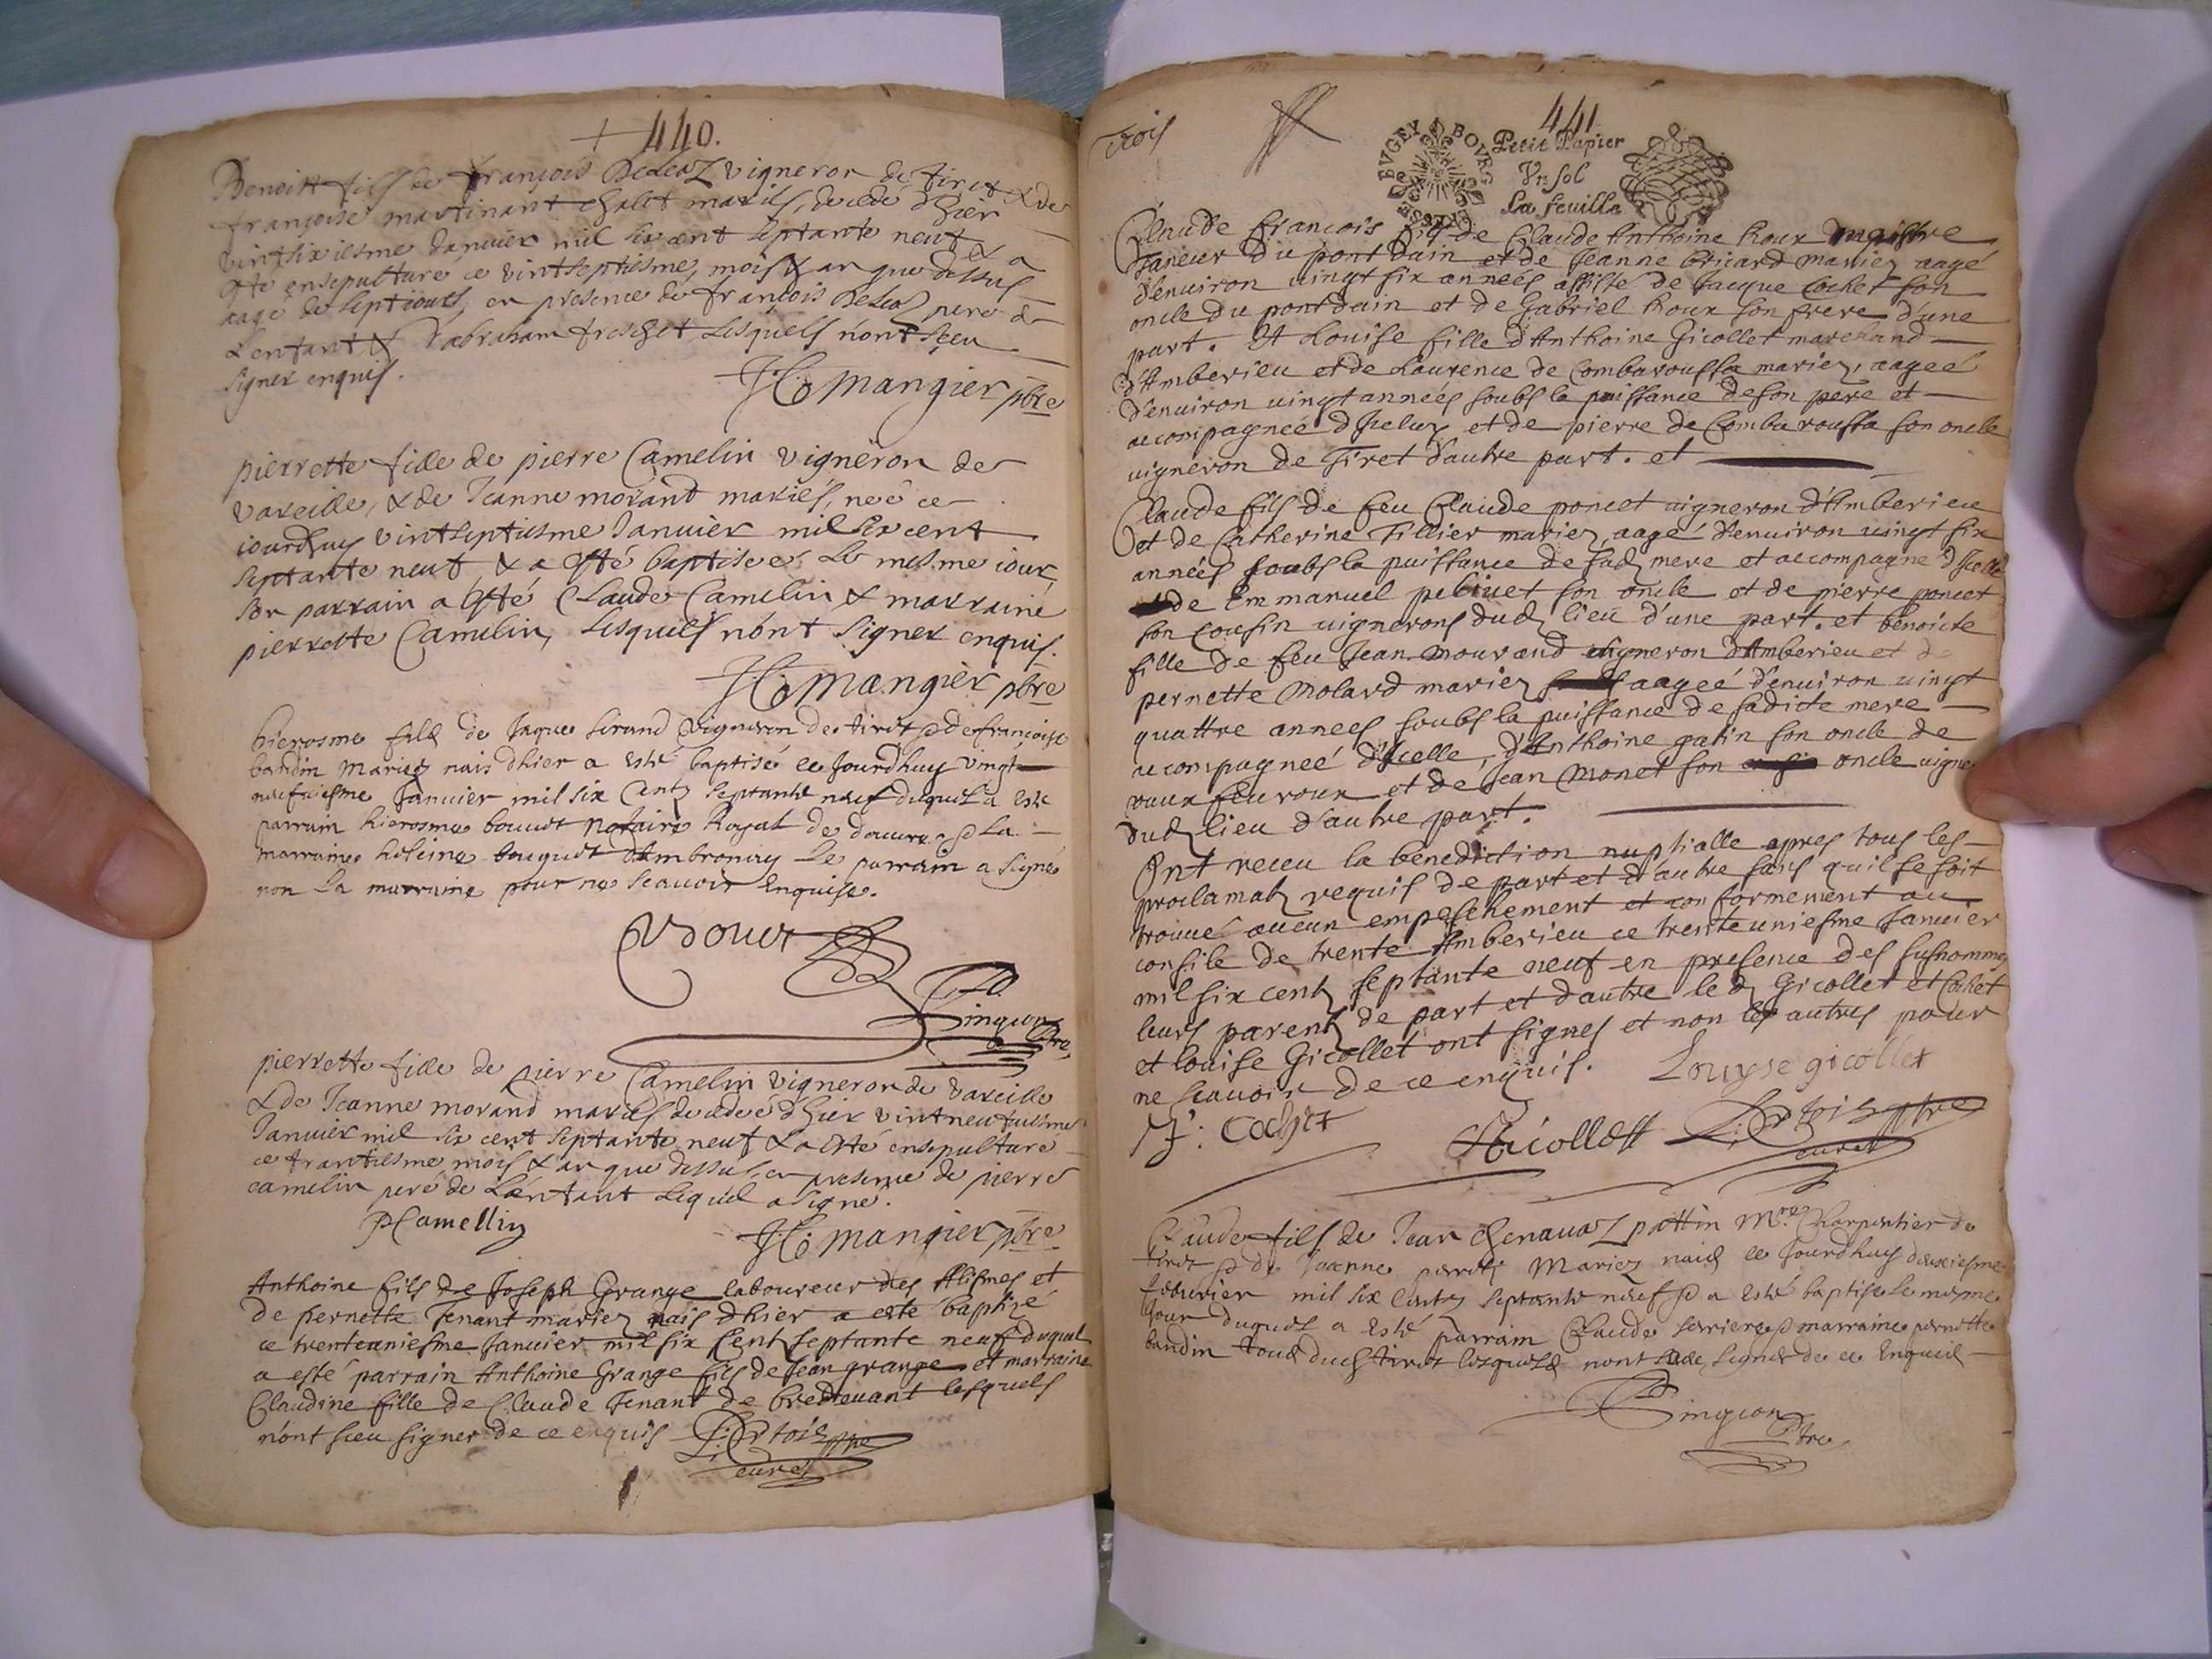 + 440.
Benoitt fils de françois Beleaz vigneron de tiret & de
françoise martinant chalet mariés, decedé d'hier
vintsixiesme Janvier mil six cent septante neuf & a
esté ensepulturé ce vintseptiesme, mois & an que dessus
aagé de sept iours, en presence de françois Beleaz pere de
L'enfant & d'abraham freschet Lesquels n'ont sçeu
signer enquis.
Mangier pbre
pierrette fille de pierre Camelin vigneron de
vareille, & de Jeanne morand mariés, neé ce
iourd'huy vintseptiesme Janvier mil six cent
septante neuf & a esté baptiseé Le mesme iour,
son parrain a esté Claude Camelin & marraine
pierrette Camelin, Lesquels n'ont signer enquis.
Mangier pbre
hierosme filz de Jaque sirand vigneron de tiret & de françoise
bandin Mariez nais dhier a esté baptisé ce Jourdhuy vingt
neufuiesme Janvier mil six Centz septante neuf duquel a esté
parrain hierosme bouvet Notaire Royal de douvre & La
marraine heleine bouquet d'Ambronay Le parrain a signé
non La marraine pour ne scauoir Enquise.
Bouvet
Singion
pbre
pierrette fille de pierre Camelin vigneron de vareille
& de Jeanne morand mariés decedeé d'hier vintneufuiesme
Janvier mil six cent septante neuf & a esté ensepulturé
ce trantiesme mois & an que dessus, en presence de pierre
camelin peré de L'enfant Lequel a signé.
PCamellin
Mangier pbre
Anthoine fils de Joseph Grange laboureur des Alismes et
de pernette Tenant mariez nais dhier a esté baptizé
ce trenteuniesme Januier mil six Cent septante neuf duquel
a esté parrain Anthoine Grange fils de Jean grange et marraine
Claudine fille de Claude Tenant de Bredeuant lesquels
n'ont sceu signer de ce enquis
Dertois pbre
curé
Trois
441
BVGEY BOVRG
Petit Papier
Vn sol
La feuille
Claude francois fils de Claude Anthoine Roux maistre
Taneur du pont dain et de Jeanne bricard mariez aagé
d'enuiron uingt six années assisté de Jacque Cochet son
oncle du pont dain et de Gabriel Roux son frere d'une
part. Et Louise fille d'Anthoine Gicollet marchand
d'Amberieu et de Laurence de Combarousse mariez, aageé
d'enuiron uingt années soubs la puissance de son pere et
accompagneé d'Iceluy et de pierre de Combarousse son oncle
uigneron de Tiret d'autre part. et
Claude fils de feu Claude poncet uigneron d'Amberieu
et de Catherine Tillier mariez, aagé d'enuiron uingt six
années soubs la puissance de sad. mere et accompagné d'Icelle
de Emmanuel pelinet son oncle et de pierre poncet
son cousin uignerons dud. lieu d'une part. et benoiste
fille de feu Jean Mourand uigneron d'Amberieu et de
pernette Molard mariez aageé d'enuiron uingt
quattre années soubs la puissance de sadicte mere
accompagneé d'Icelle, d'Anthoine gatin son oncle de
vaux feuroux et de Jean Monet son oncle uigne
dud. lieu d'autre part.
Ont receu la benediction nuptialle apres tous les
proclamatz requis de part et d'autre sans quil se soit
trouué aucun empeschement et conformement au
consile de trente Amberieu ce trenteuniesme Januier
mil six centz septante neuf en presence des susnommez
leurs parentz de part et d'autre led. Gicollet et Cochet
et louise Gicollet ont signes et non les autres pour
ne scauoir de ce enquis. Louyse gicollet
J. Cochet
AGicollett
Dertois pbre
curé
Claude fils de Jean Chenauaz pottin Mre Charpentier de
tiret & de Jeanne perret Mariez naid ce Jourdhuy deuxiesme
feburier mil six Centz septante neuf & a esté baptisé Le mesme
Jour duquel a esté parrain Claude serriere & marraine pernette
bandin tous dud. tiret lesquels nont sceu signer de ce Enquis
Singion
pbre